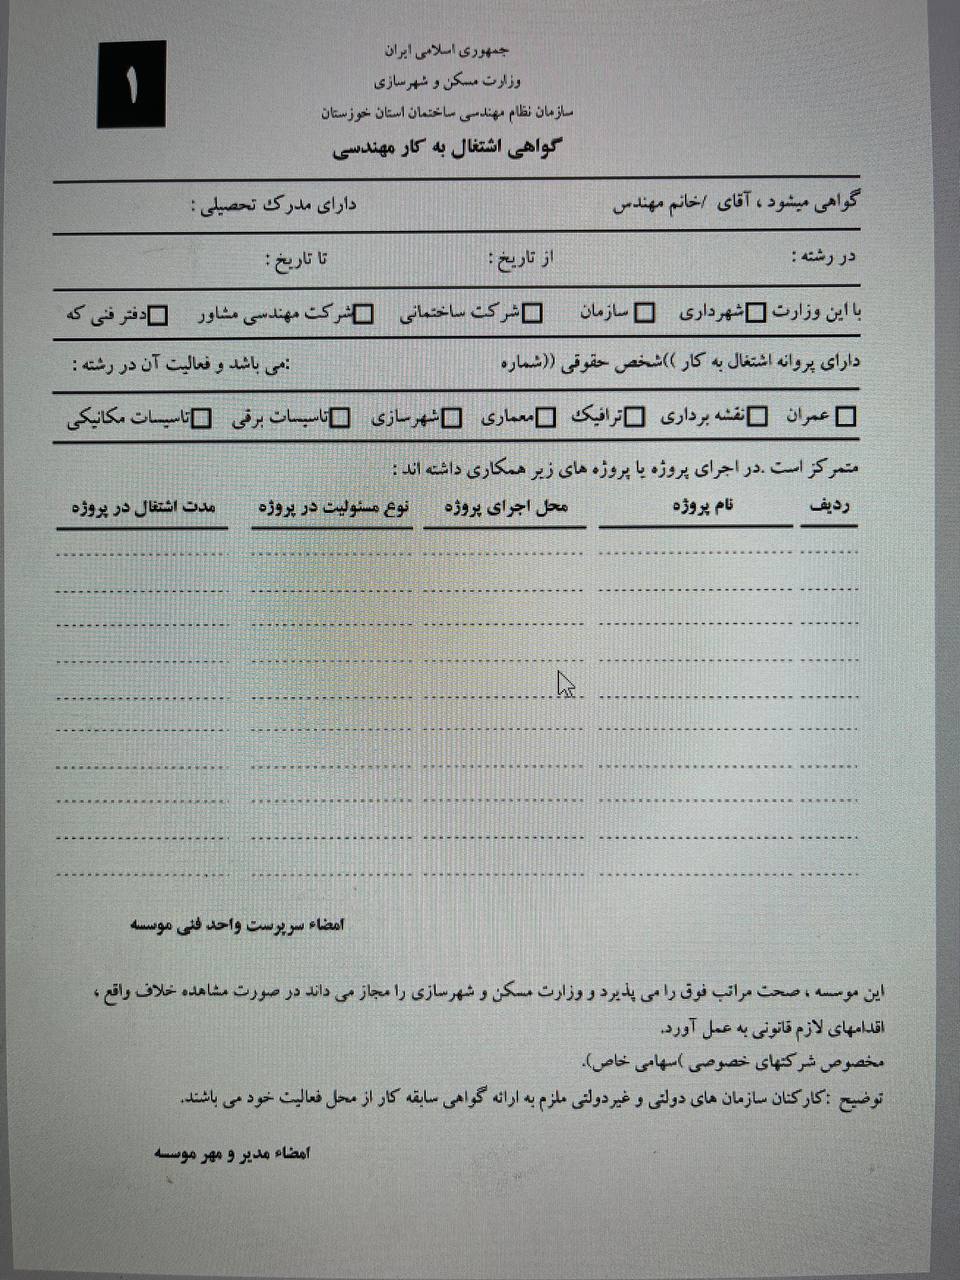 ۱
جمهوری اسلامی ایران
وزارت مسکن و شهرسازی
سازمان نظام مهندسی ساختمان استان خوزستان
گواهی اشتغال به کار مهندسی
گواهی میشود ، آقای /خانم مهندس دارای مدرک تحصیلی :
در رشته : از تاریخ : تا تاریخ :
با این وزارت شهرداری سازمان شرکت ساختمانی شرکت مهندسی مشاور دفتر فنی که
دارای پروانه اشتغال به کار ))شخص حقوقی ((شماره :می باشد و فعالیت آن در رشته :
عمران نقشه برداری ترافیک معماری شهرسازی تاسیسات برقی تاسیسات مکانیکی
متمرکز است .در اجرای پروژه یا پروژه های زیر همکاری داشته اند :
ردیف نام پروژه محل اجرای پروژه نوع مسئولیت در پروژه مدت اشتغال در پروژه
امضاء سرپرست واحد فنی موسسه
این موسسه ، صحت مراتب فوق را می پذیرد و وزارت مسکن و شهرسازی را مجاز می داند در صورت مشاهده خلاف واقع ،
اقدامهای لازم قانونی به عمل آورد.
مخصوص شرکتهای خصوصی )سهامی خاص(.
توضیح :کارکنان سازمان های دولتی و غیردولتی ملزم به ارائه گواهی سابقه کار از محل فعالیت خود می باشند.
امضاء مدیر و مهر موسسه